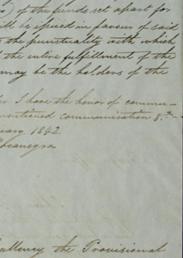 ) of the funds set apart for
will is offered in favor of said
the punctuality with which
the entire fulfillment of the
may be the holders of the
I have the honor of commu-
mentioned communication &c.
1842
Excellency the Provisional